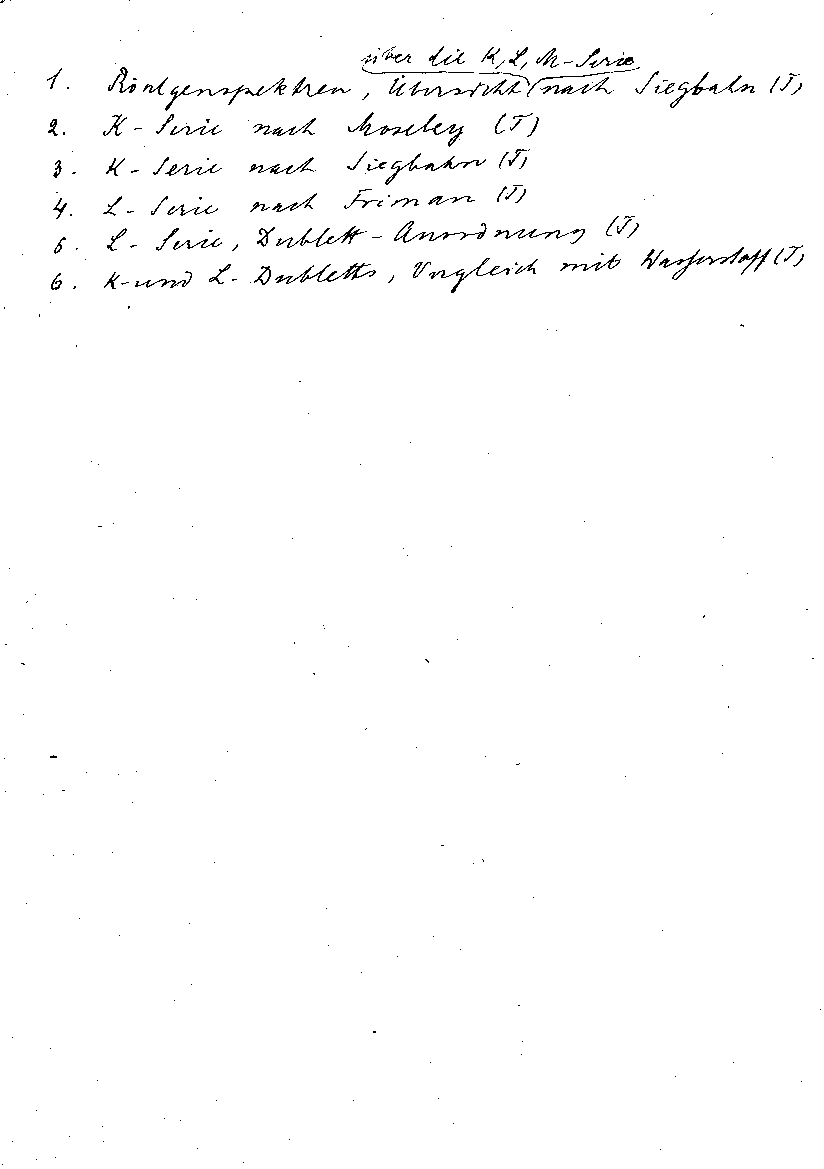 über die K, L, M-Serie
1. Röntgenspektren, Übersicht (nach Siegbahn (T)
2. K-Serie nach Moseley (T)
3. K-Serie nach Siegbahn (T)
4. L-Serie nach Friman (T)
5. L-Serie, Dublett-Anordnung (T)
6. K- und L-Dubletts, Vergleich mit Wasserstoff (T)